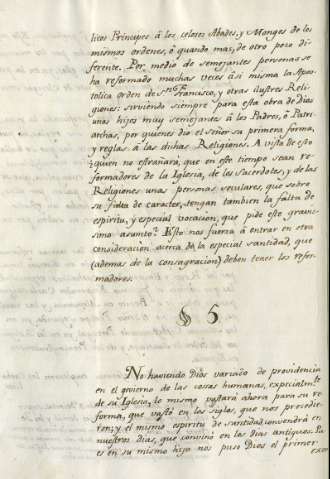 licos Principes â los celosos Abades, y Monges de los
mismos ordenes, ó quando mas, de otro poco di-
ferente. Por medio de semejantes personas se
ha reformado muchas veces âsi misma la Apos-
tolica orden de Sn. Francisco, y otras ilustres Reli-
giones: sirviendo siempre para esta obra de Dios
unos hijos muy semejantes â los Padres, ô Patri-
archas, por quienes dio el señor su primera forma,
y reglas â las dichas Religiones. A vista de esto
¿quien no estrañará, que en este tiempo sean re-
formadores de la Iglesia, de los Sacerdotes, y de las
Religiones unas personas seculares, que sobre
su falta de caracter, tengan tambien la falta de
espiritu, y especial vocacion, que pide este gravis-
simo asunto? Esto nos fuerza â entrar en otra
consideracion acerca de la especial santidad, que
(ademas de la consagracion) deben tener los refor-
madores.
§ 5
No haviendo Dios variado de providencia
en el govierno de las cosas humanas, especialmte.
de su Iglesia, lo mismo vastará ahora para su re-
forma, que vastó en los siglos, que nos precedie-
ron; y el mismo espiritu de santidad convendrá en
nuestros dias, que convino en los dias antiguos. Pu
es en su mismo hijo nos puso Dios el primer
exem